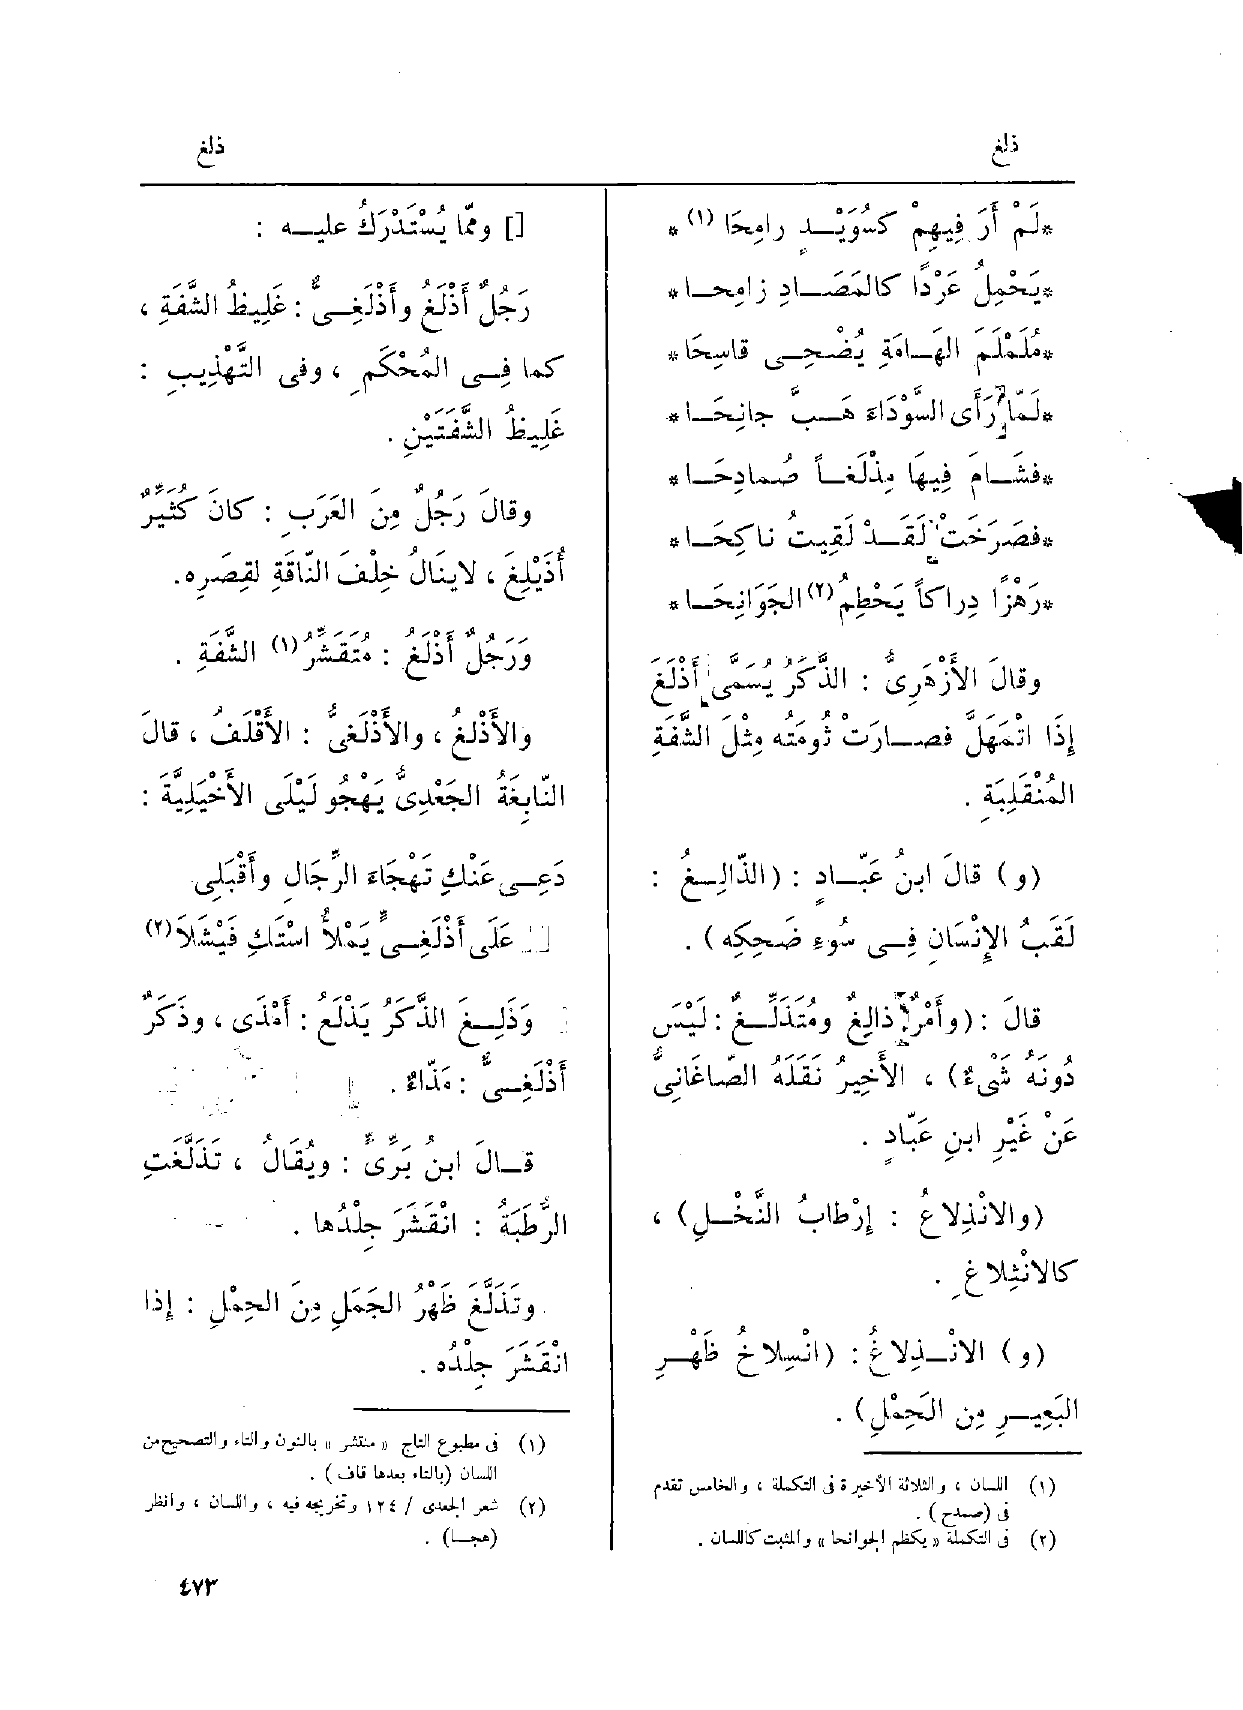 ذلغ
ذلغ
*لَمْ أَرَ فِيهِمْ كَسُوَيْـدٍ رامِحَا (١) *
*يَحْمِلُ عَرْدًا كالمَصَـادِ زامِحَـا*
*مُلَمْلَمَ الهَـامَةِ يُضْحِـى قاسِحَا*
*لَمَّا رَأَى السَّوْدَاءَ هَـبَّ جانِحَـا*
*فشَـامَ فِيهَا مِذْلَغـاً صُمادِحَـا*
*فصَرَخَتْ لَقَـدْ لَقِيتُ ناكِحَـا*
*رَهْزًا دِراكاً يَحْطِمُ (٢) الجَوَانِحَـا*
وقالَ الأَزْهَرِىُّ : الذَّكَرُ يُسَمَّى أَذْلَغَ
إِذَا اتْمَهَلَّ فصـارَتْ ثُومَتُه مِثْلَ الشَّفَةِ
المُنْقَلِبَةِ .
(و) قالَ ابنُ عَبّـادٍ : (الذّالِـغُ :
لَقَبُ الإِنْسَانِ فِـى سُوءِ ضَحِكِه) .
قالَ : (وأَمْرٌ ذالِغٌ ومُتَذَلِّـغٌ : لَيْسَ
دُونَهُ شَىءٌ) ، الأَخِيرُ نَقَلَهُ الصّاغَانِىُّ
عَنْ غَيْرِ ابنِ عَبّادٍ .
(والانْذِلاغُ : إِرْطابُ النَّخْـلِ) ،
كالانْثِلاغِ .
(و) الانْـذِلاغُ : (انْسِلاخُ ظَهْـرِ
البَعِيـرِ مِن الحَمْلِ) .
(١) اللسان ، والثلاثة الأخيرة فى التكملة ، والخامس تقدم
فى (صمدح) .
(٢) فى التكملة « يكظم الجوانحا » والمثبت كاللسان .
[] وممّا يُسْتَدْرَكُ عليـه :
رَجُلٌ أَذْلَغُ وأَذْلَغِـىٌّ : غَلِيظُ الشَّفَةِ ،
كما فِـى المُحْكَمِ ، وفى التَّهْذِيبِ :
غَلِيظُ الشَّفَتَيْنِ .
وقالَ رَجُلٌ مِنَ العَرَبِ : كانَ كُثَيِّرٌ
أُذَيْلِغَ ، لاينَالُ خِلْفَ النّاقَةِ لقِصَرِه.
وَرَجُلٌ أَذْلَغُ : مُتَقَشِّرُ (١) الشَّفَةِ .
والأَذْلَغُ ، والأَذْلَغِىُّ : الأَقْلَفُ ، قالَ
النّابِغَةُ الجَعْدِىُّ يَهْجُو لَيْلَى الأَخْيَلِيَّةَ :
دَعِـى عَنْكِ تَهْجَاءَ الرِّجَالِ وأَقْبِلِى
عَلَى أَذْلَغِـىٍّ يَمْلأُ اسْتَكِ فَيْشَلاَ (٢)
وَذَلِـغَ الذَّكَرُ يَذْلَغُ : أَمْذَى ، وذَكَرٌ
أَذْلَغِـىٌّ : مَذّاءٌ .
قـالَ ابنُ بَرِّىٍّ : ويُقَالُ ، تَذَلَّغَتِ
الرُّطَبَةُ : انْقَشَرَ جِلْدُها .
وتَذَلَّغَ ظَهْرُ الجَمَلِ مِنَ الحِمْلِ : إِذا
انْقَشَرَ جِلْدُه .
(١) فى مطبوع التاج « منتشر » بالنون والتاء والتصحيح من
اللسان (بالتاء بعدها قاف) .
(٢) شعر الجعدى / ١٢٤ وتخريجه فيه ، واللسان ، وانظر
(هجـا) .
٤٧٣